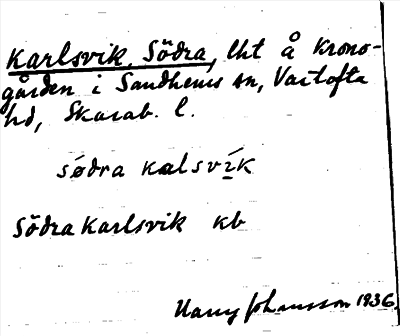 Karlsvik, Södra, lht å Krono-
gården i Sandhems sn, Vartofta
hd, Skarab. l.
södra kalsvík
Södra Karlsvik kb
Harry Johansson 1936.